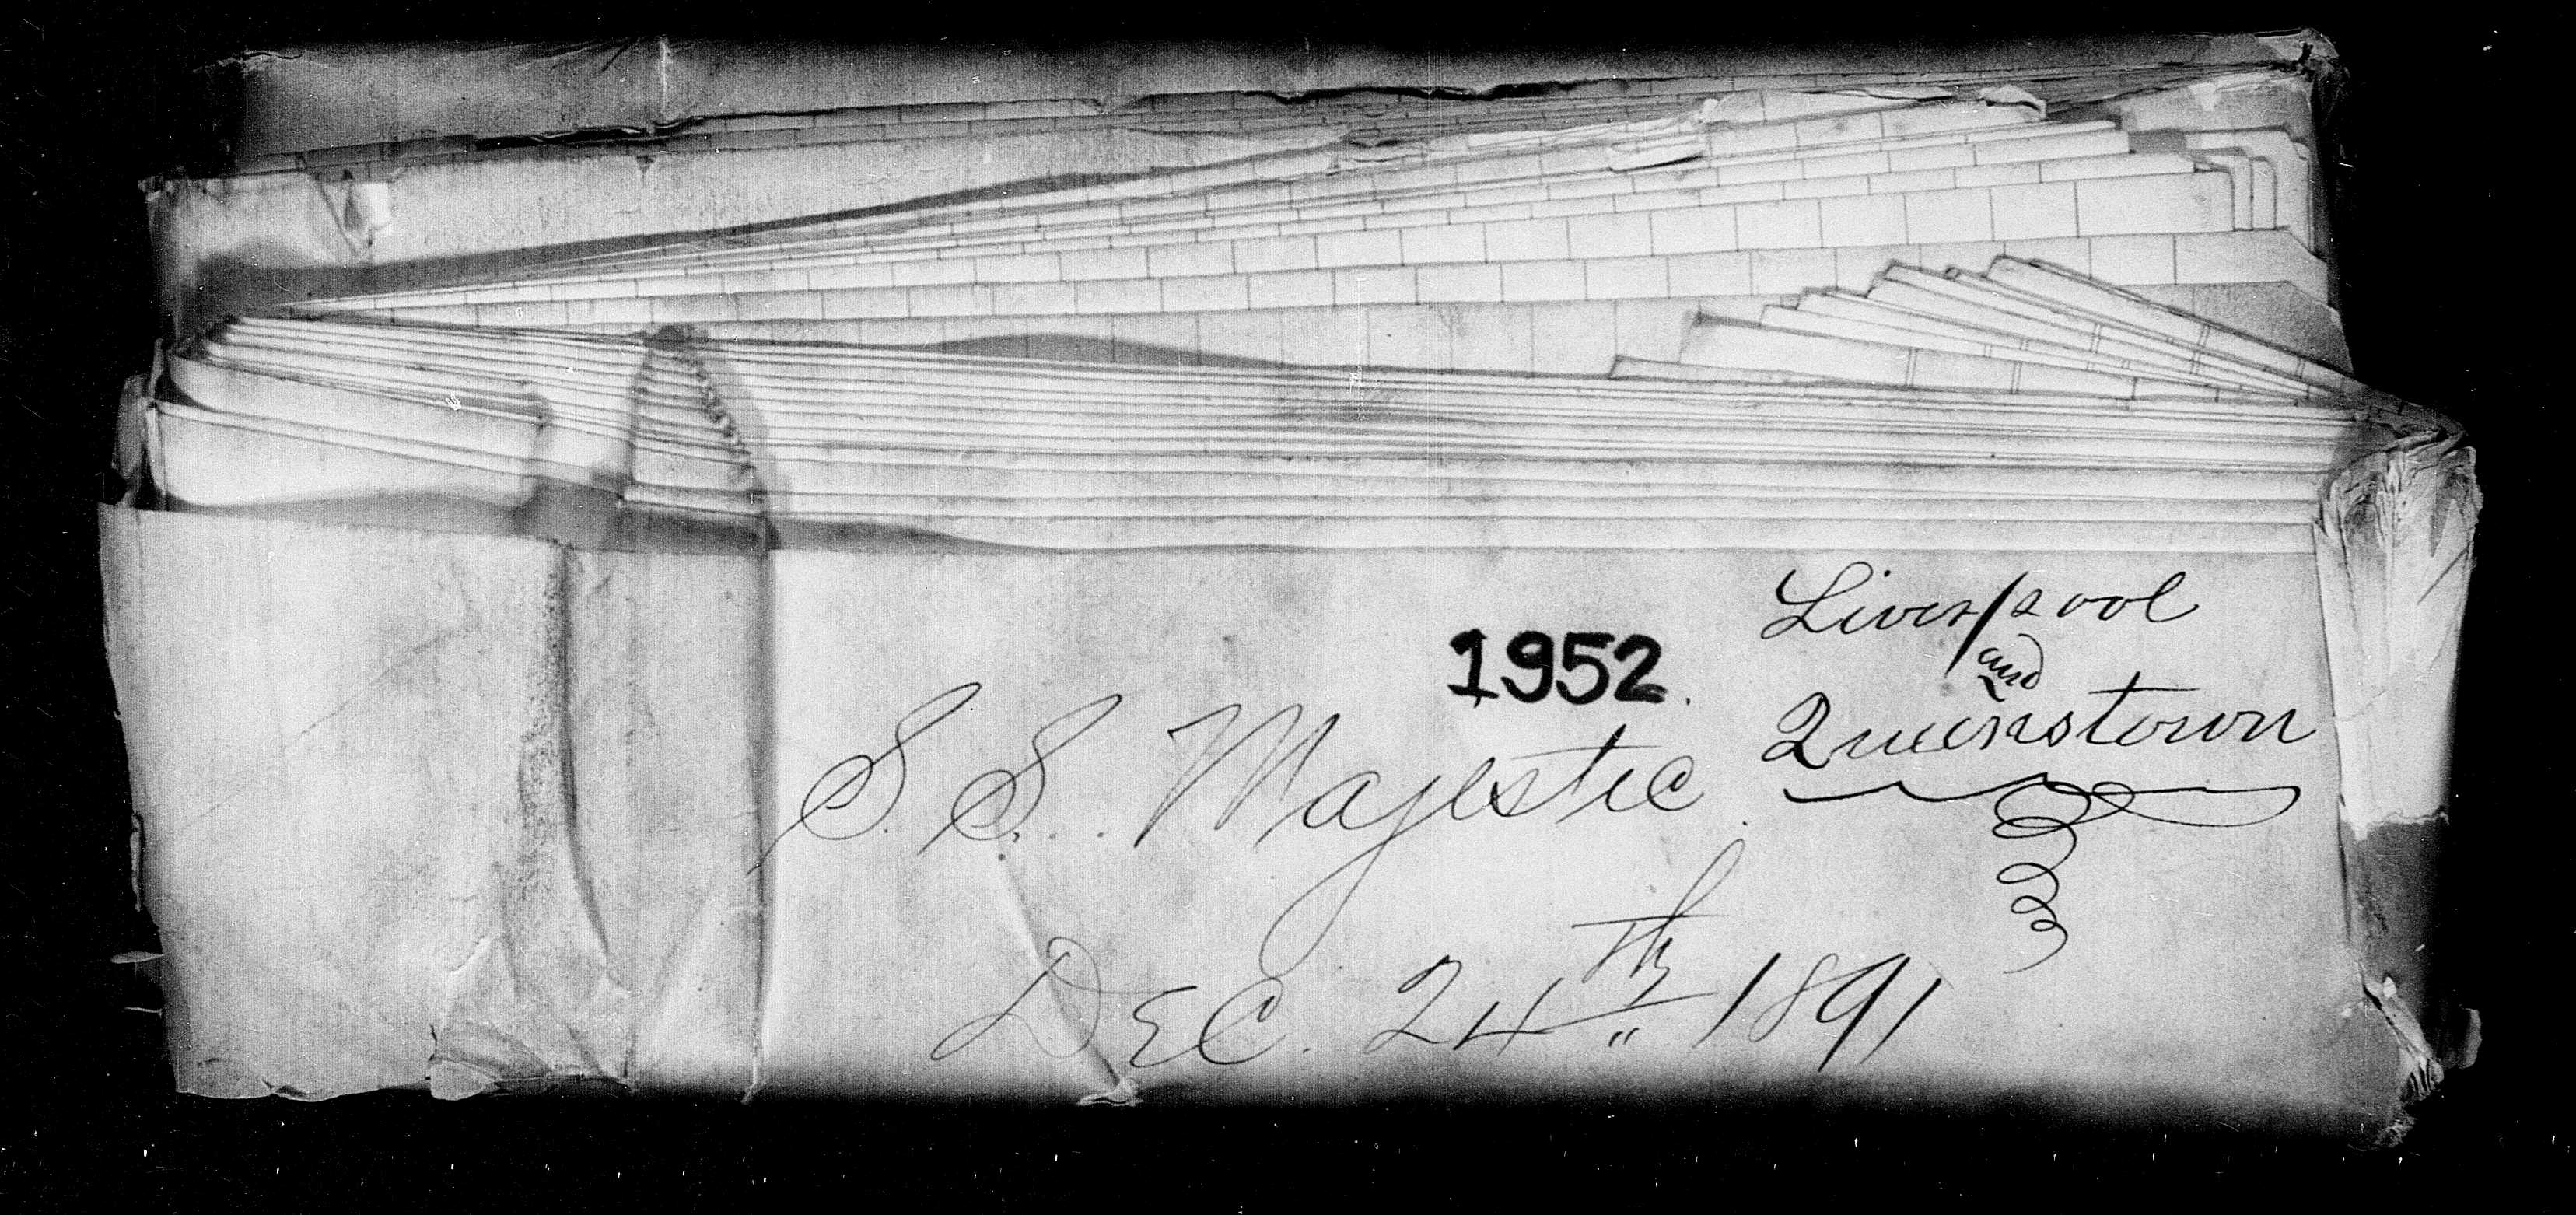 Liverpool
and
Queenstown
1952.
S. S. Majestic.
Dec. 24th 1891